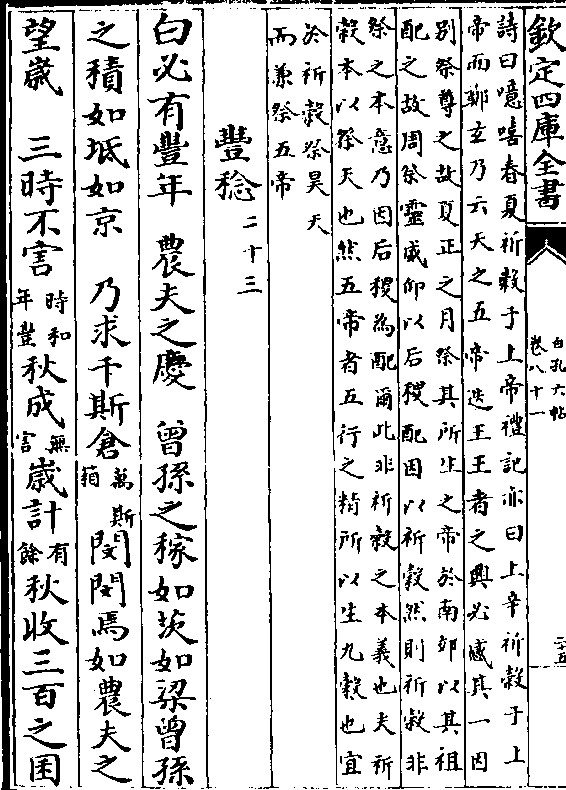 欽定四庫全書
白孔六帖
卷八十一
二十五
詩曰噫嘻春夏祈穀于上帝禮記亦曰上辛祈穀于上
帝而鄭玄乃云天之五帝迭王王者之興必感其一因
別祭尊之故夏正之月祭其所生之帝於南郊以其祖
配之故周祭靈威仰以后稷配因以祈穀然則祈穀非
祭之本意乃因后稷為配爾此非祈穀之本義也夫祈
穀本以祭天也然五帝者五行之精所以生九穀也宜
於祈穀祭昊天
而兼祭五帝
豐稔二十三
白必有豐年　農夫之慶　曾孫之稼如茨如梁曾孫
之積如坻如京　乃求千斯倉萬斯箱閔閔焉如農夫之
望歲　三時不害時和年豐秋成無害歲計有餘秋收三百之囷